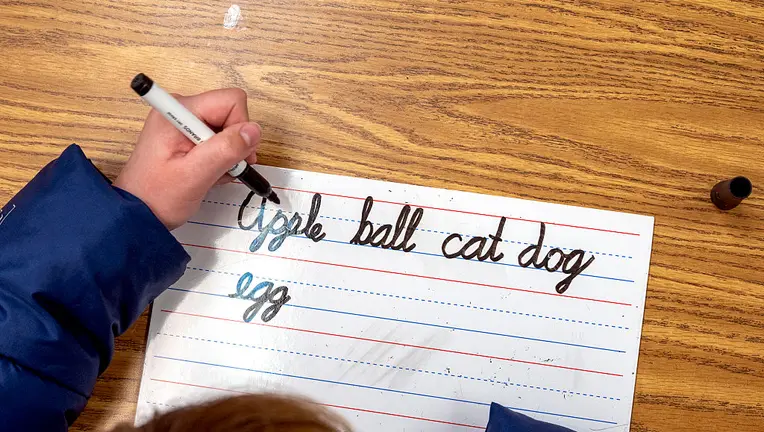 Apple ball cat dog
egg